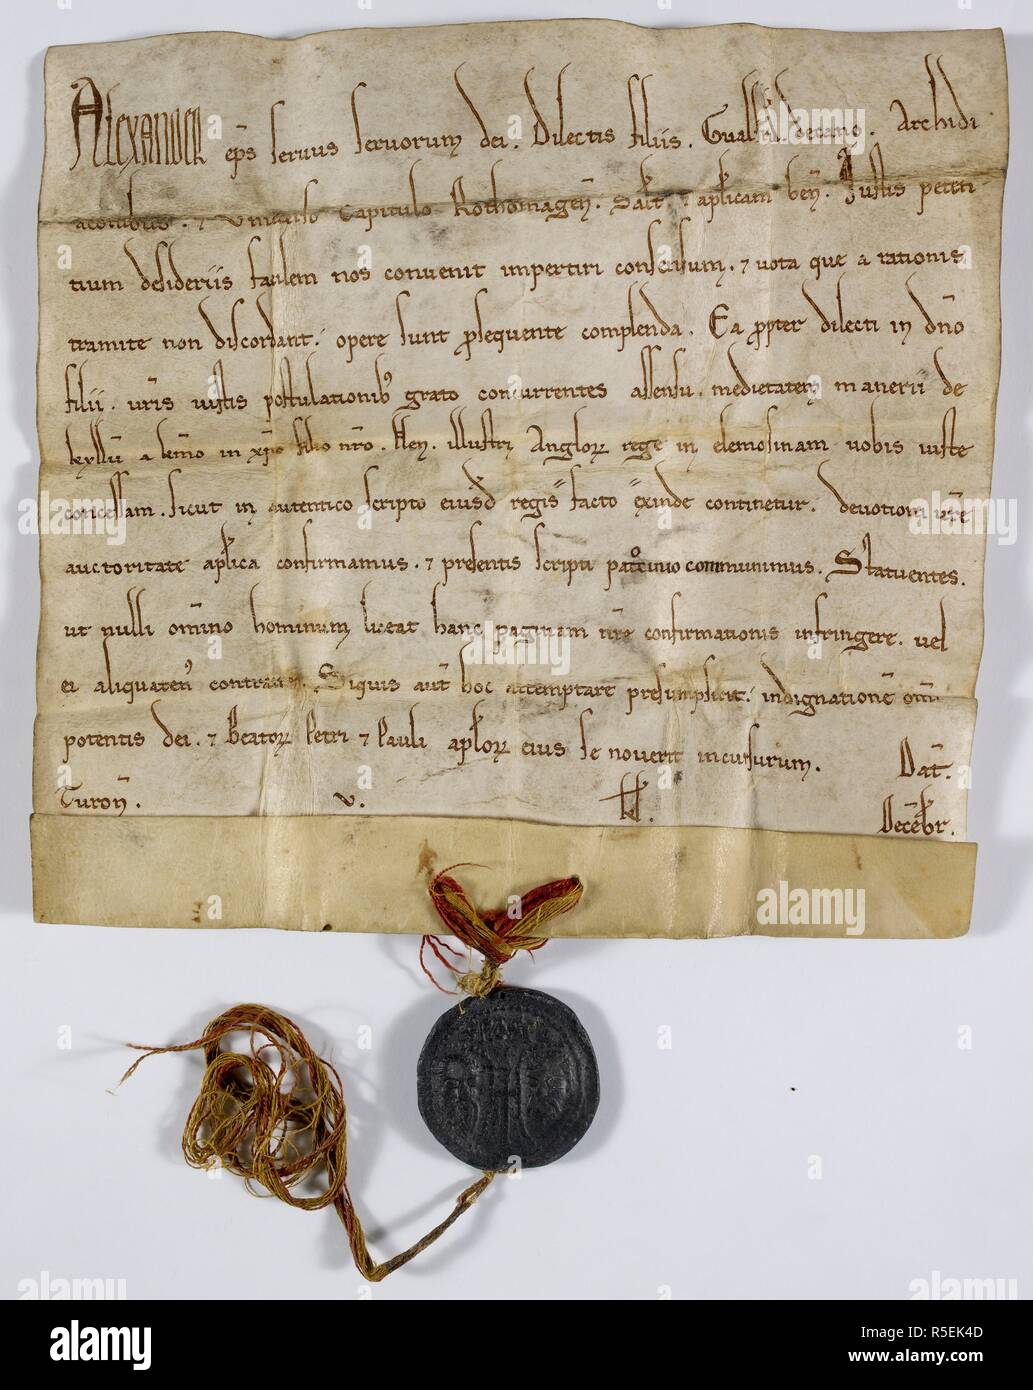 Alexander ep̄s servus servorum dei. Dilectis filiis. Gualfrid̄ decano. Archidi
aconibus. ⁊ Universo Capitulo Rothomageñ. Salt̄. ⁊ ap̄licam beñ. Justis petenti
tium desideriis facilem nos convenit impertiri consensum. ⁊ vota que a rationis
tramite non discordant. opere sunt ꝓsequente complenda. Ea ꝓpter dilecti in dño
filii. ur̄is iustis postulationibꝰ grato concurrentes assensu. medietatem manerii de
a km̄o in xp̄o filio nr̄o. Hen. illustri Angloꝝ rege in elemosinam vobis iuste
concessam. sicut in autentico scripto eiusd̄ regis facto exinde continetur. devotioni ur̄e
auctoritate ap̄lica confirmamus. ⁊ presentis scripti pat°cinio communimus. Statuentes.
ut nulli om̄ino hominum liceat hanc paginam nr̄e confirmationis infringere. vel
ei aliquateñ contraire. Siquis aut̄ hoc attemptare presumpserit. indignationē om̄i
potentis dei. ⁊ Beatoꝝ Petri ⁊ Pauli ap̄loꝝ eius se noverit incursurum. Dat̄.
Turoñ. v. kl. Decēbr.
alamy
Image ID: R5EK4D
www.alamy.com